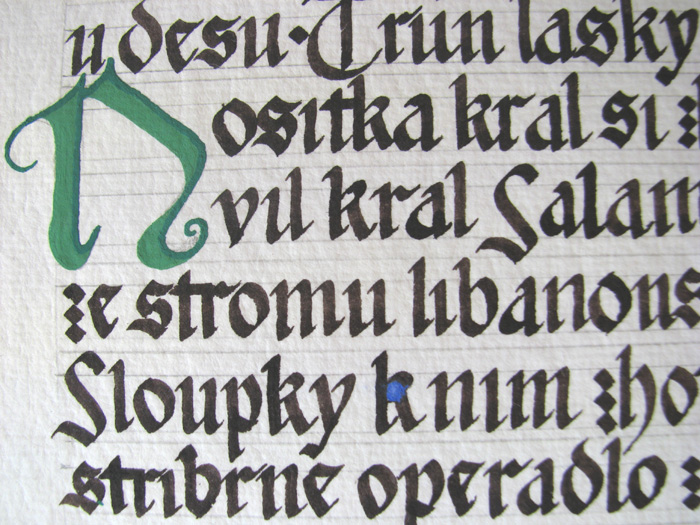 u desu·Trun lasky
Nositka kral si z
vil kral Salam
ze stromu libanons
Sloupky k nim zho
stribrne operadlo z